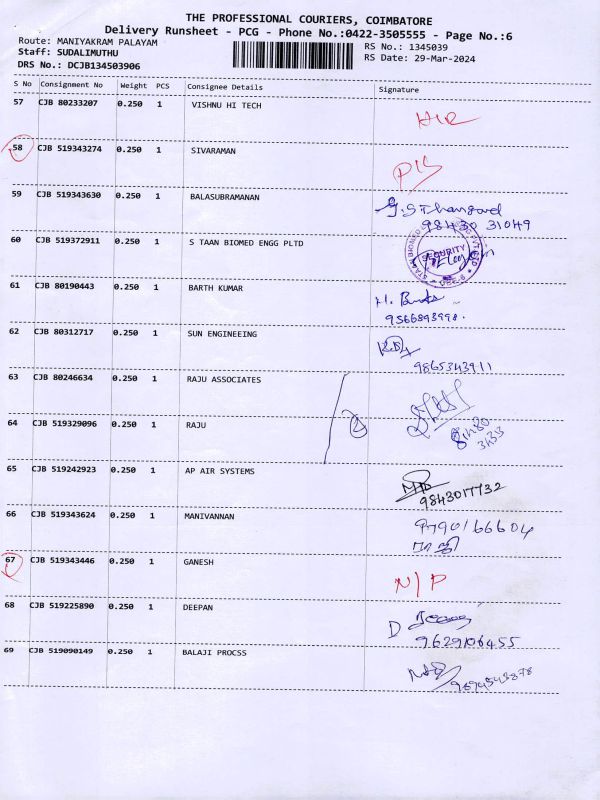 THE PROFESSIONAL COURIERS, COIMBATORE
Delivery Runsheet - PCG - Phone No.:0422-3505555 - Page No.:6
Route: MANIYAKRAM PALAYAM
RS No.: 1345039
Staff: SUDALIMUTHU
RS Date: 29-Mar-2024
DRS No.: DCJB134503906
S No Consignment No Weight PCS Consignee Details Signature
57 CJB 80233207 0.250 1 VISHNU HI TECH
58 CJB 519343274 0.250 1 SIVARAMAN
59 CJB 519343630 0.250 1 BALASUBRAMANAN
98430 31049
60 CJB 519372911 0.250 1 S TAAN BIOMED ENGG PLTD
SECURITY
61 CJB 80190443 0.250 1 BARTH KUMAR
9566893998.
62 CJB 80312717 0.250 1 SUN ENGINEEING
9865343911
63 CJB 80246634 0.250 1 RAJU ASSOCIATES
64 CJB 519329096 0.250 1 RAJU
2
65 CJB 519242923 0.250 1 AP AIR SYSTEMS
9843017732
66 CJB 519343624 0.250 1 MANIVANNAN
9790166604
67 CJB 519343446 0.250 1 GANESH
N/P
68 CJB 519225890 0.250 1 DEEPAN
D
9629106455
69 CJB 519090149 0.250 1 BALAJI PROCSS